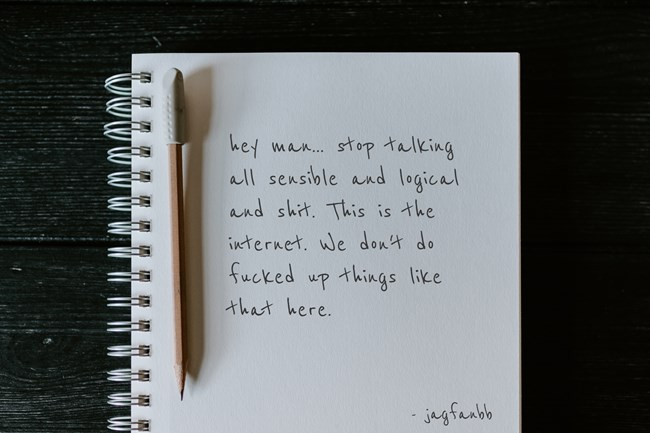 hey man... stop talking
all sensible and logical
and shit. This is the
internet. We don't do
fucked up things like
that here.
- jagfanbb